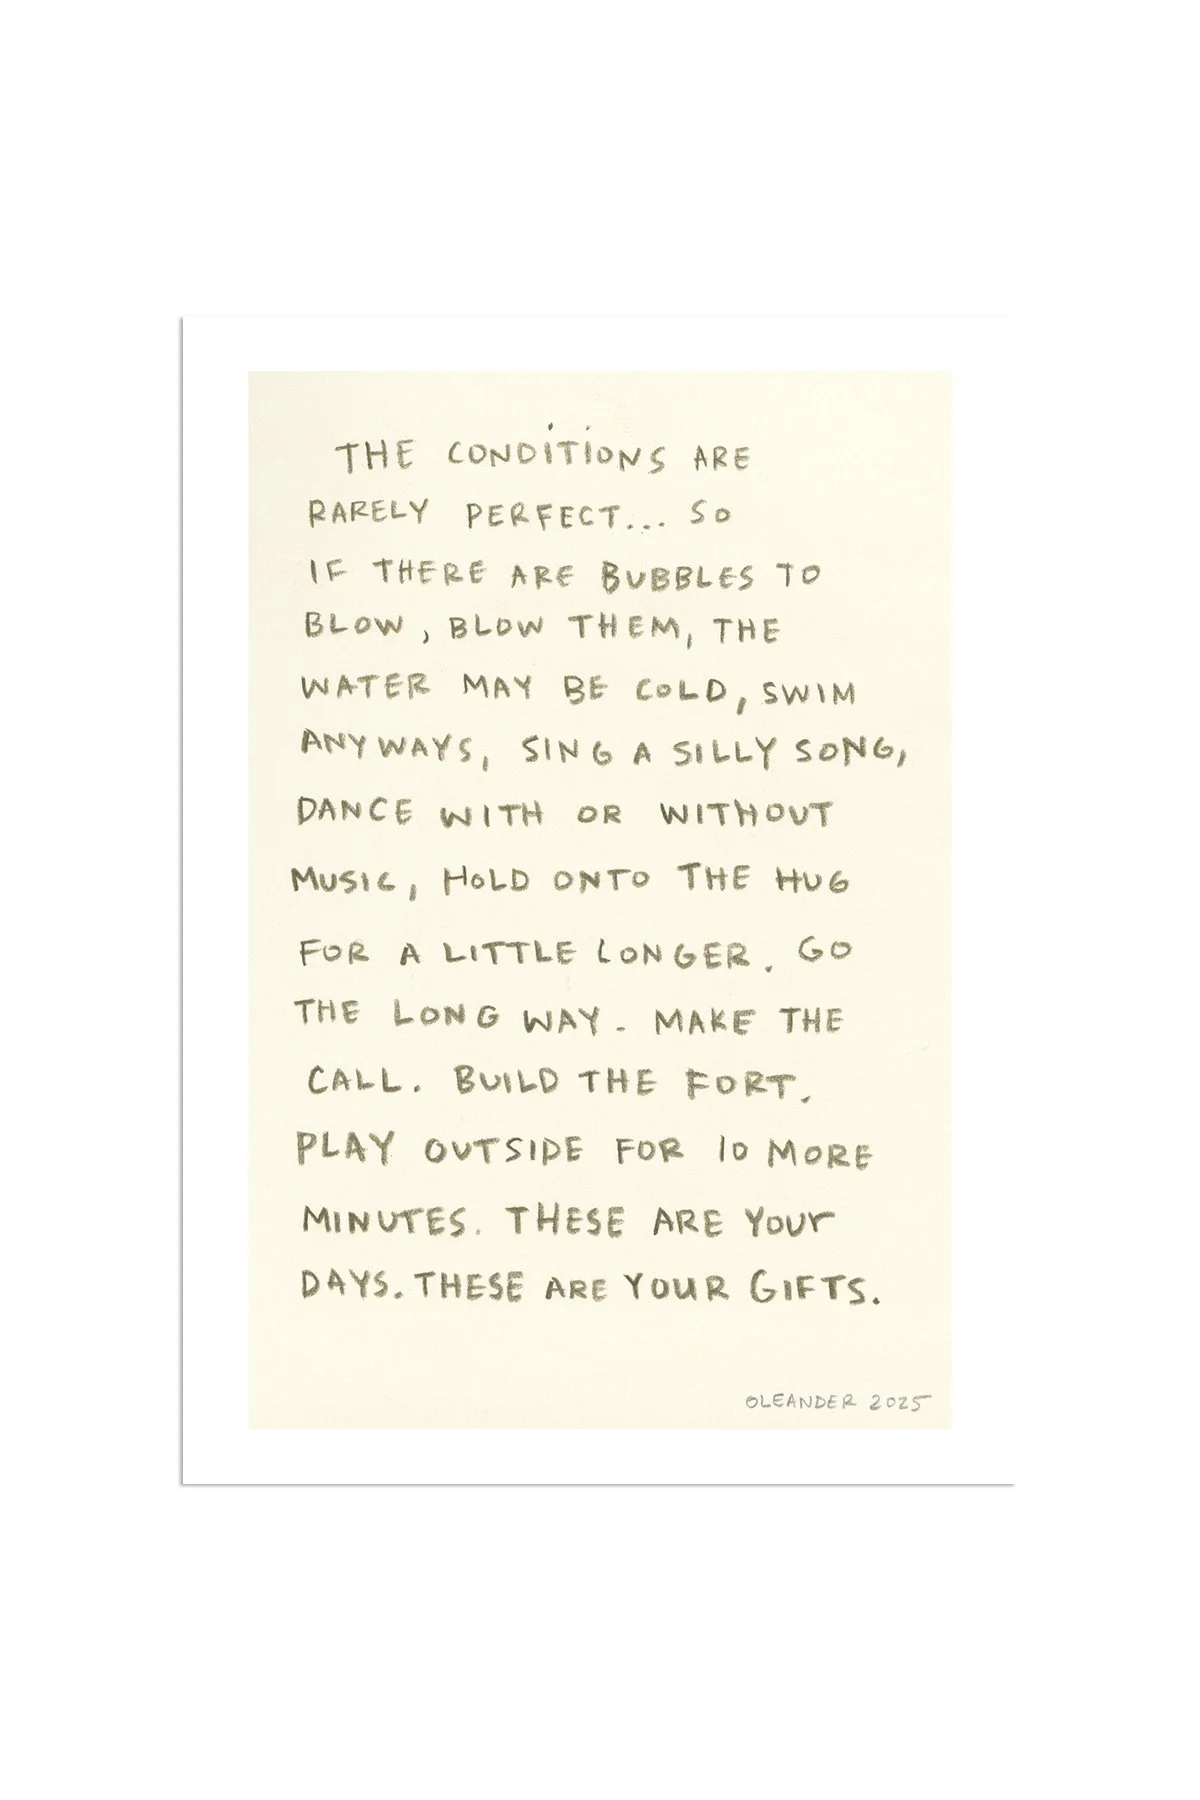 THE CONDITIONS ARE
RARELY PERFECT... SO
IF THERE ARE BUBBLES TO
BLOW, BLOW THEM, THE
WATER MAY BE COLD, SWIM
ANYWAYS, SING A SILLY SONG,
DANCE WITH OR WITHOUT
MUSIC, HOLD ONTO THE HUG
FOR A LITTLE LONGER. GO
THE LONG WAY. MAKE THE
CALL. BUILD THE FORT.
PLAY OUTSIDE FOR 10 MORE
MINUTES. THESE ARE YOUR
DAYS. THESE ARE YOUR GIFTS.
OLEANDER 2025